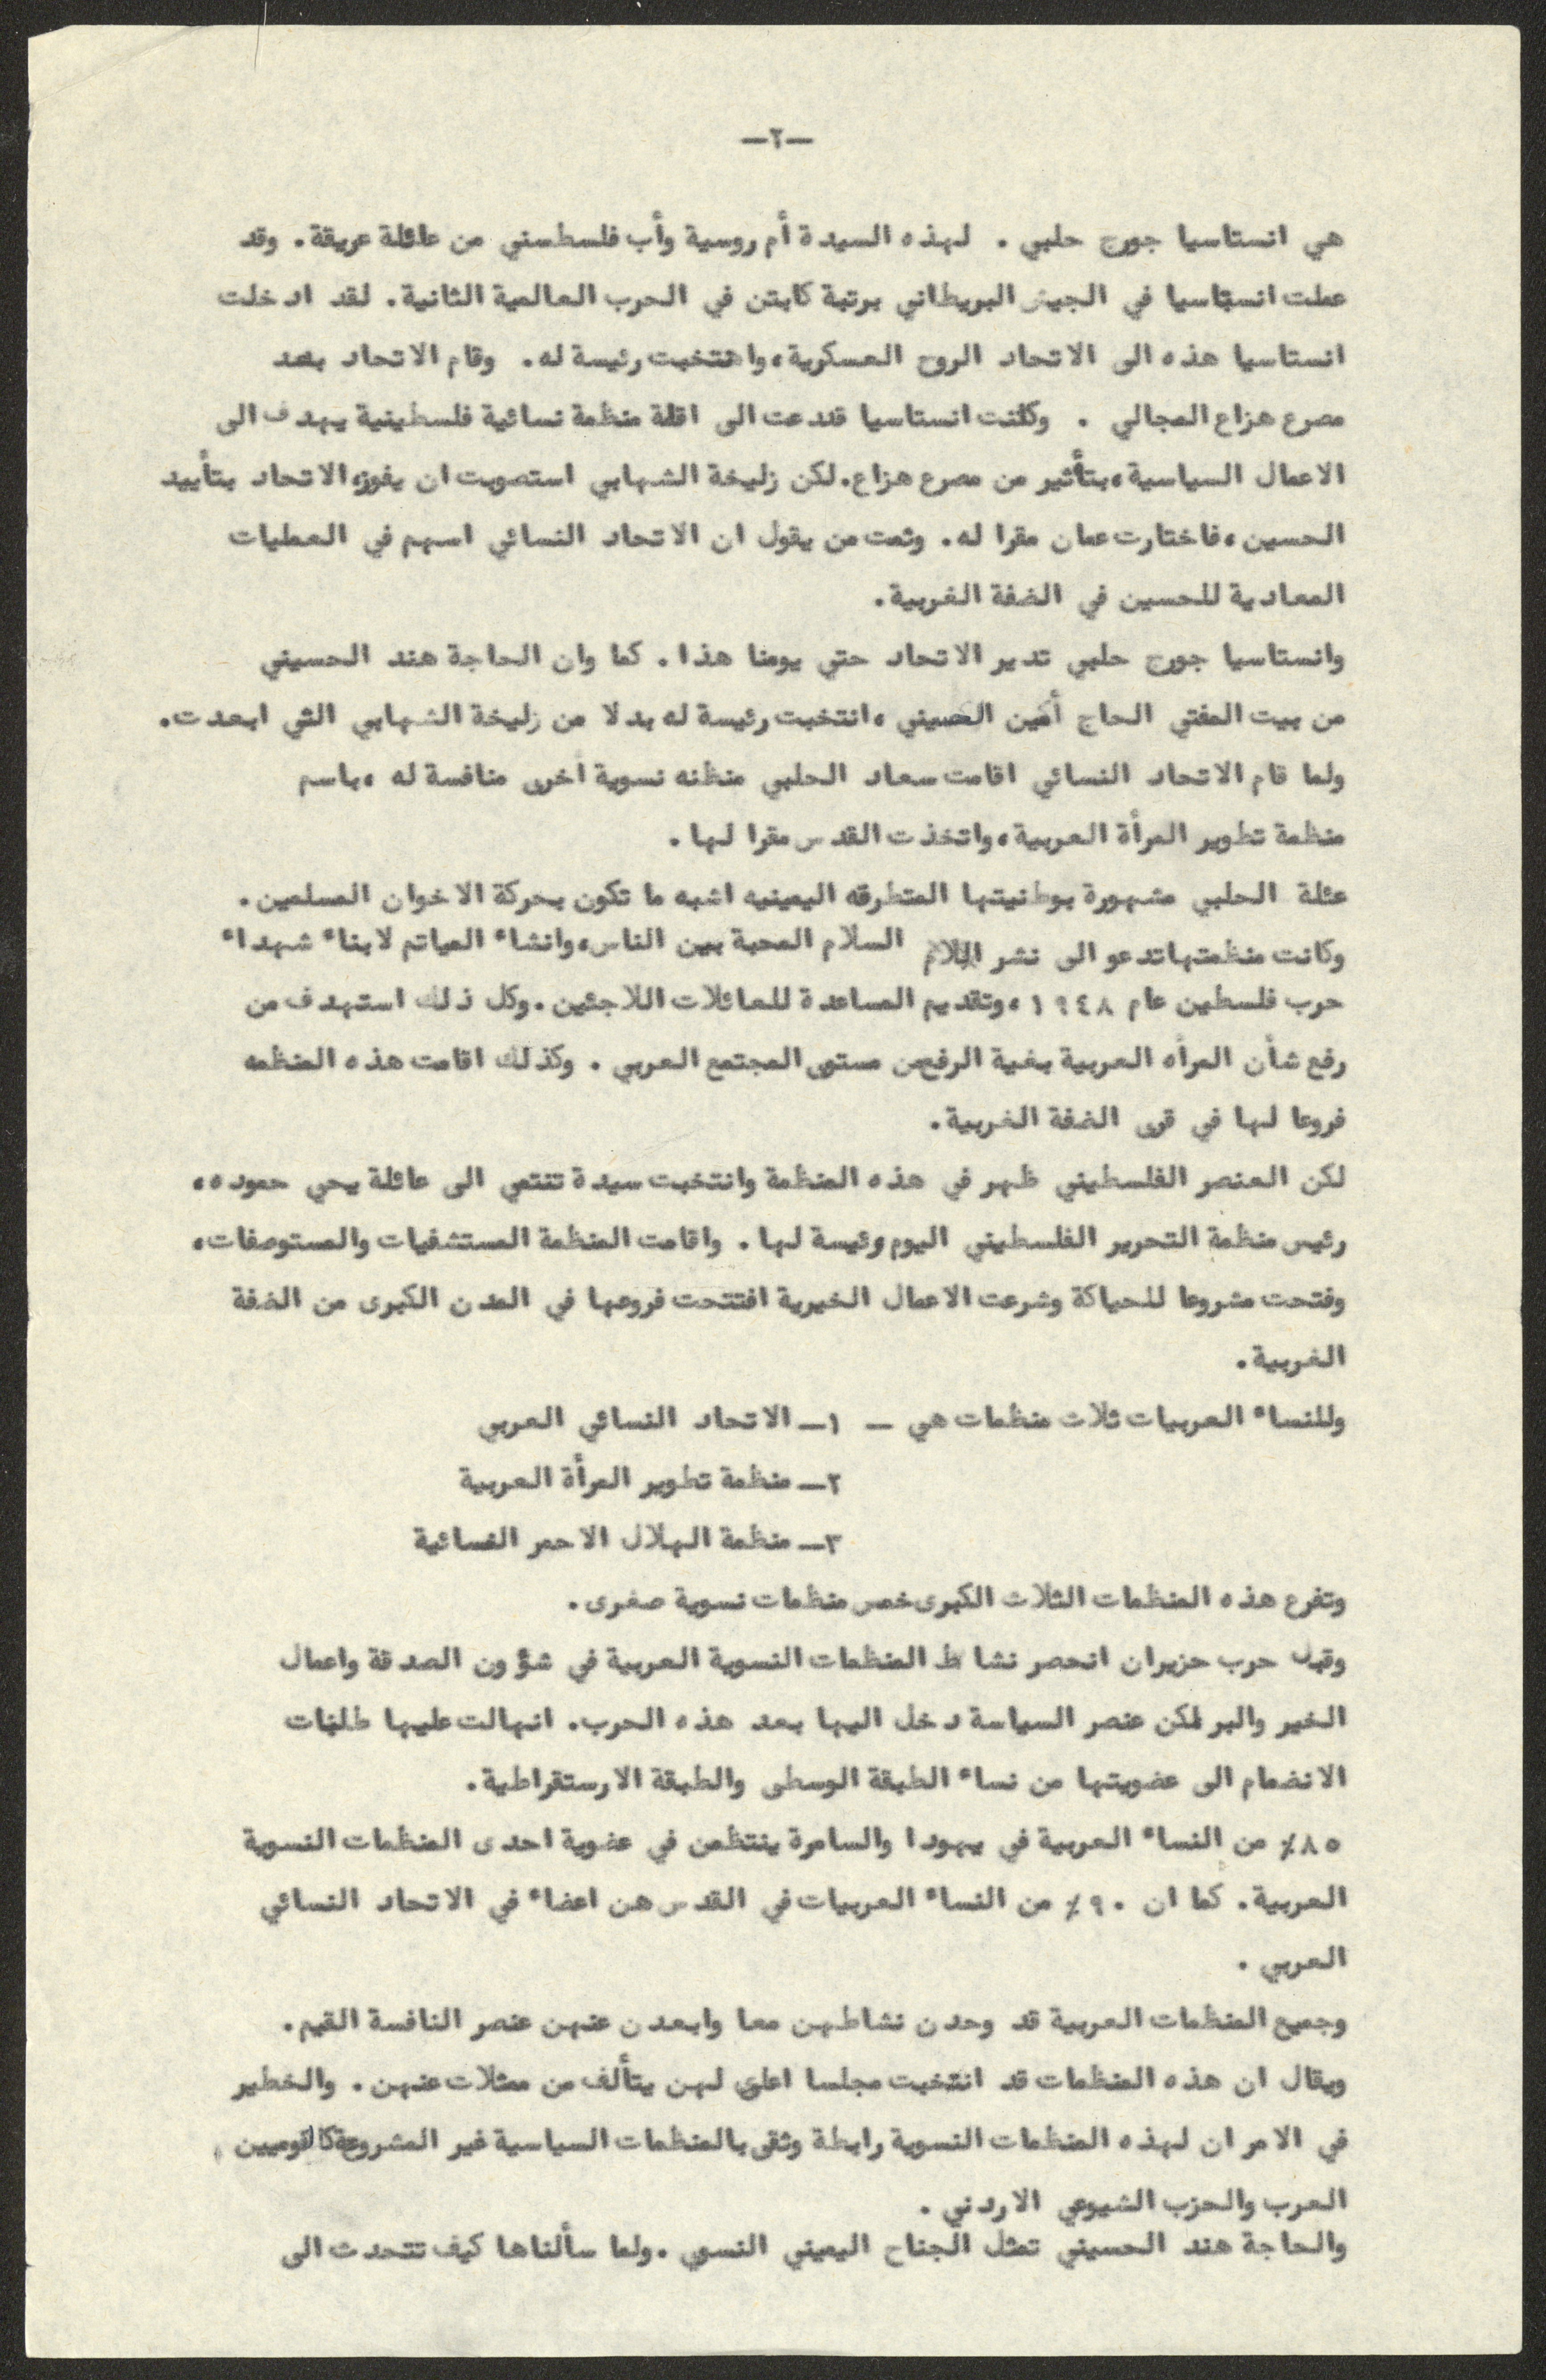 —٢—
هي انستاسيا جورج حلبي . لهذه السيدة أم روسية وأب فلسطسني من عائلة عريقة. وقد
عملت انستاسيا في الجيش البريطاني برتبة كابتن في الحرب العالمية الثانية. لقد ادخلت
انستاسيا هذه الى الاتحاد الروح العسكرية، وانتخبت رئيسة له. وقام الاتحاد بعد
مصرع هزاع المجالي . وكانت انستاسيا قد دعت الى اقامة منظمة نسائية فلسطينية يهدف الى
الاعمال السياسية، بتأثير من مصرع هزاع. لكن زليخة الشهابي استصوبت ان يفوز الاتحاد بتأييد
الحسين، فاختارت عمان مقرا له. وثمت من يقول ان الاتحاد النسائي اسهم في العمليات
المعادية للحسين في الضفة الغربية.
وانستاسيا جورج حلبي تدير الاتحاد حتي يومنا هذا. كما وان الحاجة هند الحسيني
من بيت المفتي الحاج أمين الحسيني، انتخبت رئيسة له بدلا من زليخة الشهابي التي ابعدت.
ولما قام الاتحاد النسائي اقامت سعاد الحلبي منظنه نسوية اخرى منافسة له، باسم
منظمة تطوير المرأة العربية، واتخذت القدس مقرا لها.
عئلة الحلبي مشهورة بوطنيتها المتطرقه اليمينيه اشبه ما تكون بحركة الاخوان المسلمين.
وكانت منظمتها تدعو الى نشر السلام المحبة بين الناس، وانشاء المياتم لابناء شهداء
حرب فلسطين عام ١٩٤٨، وتقديم المساعدة للعائلات اللاجئين. وكل ذلك استهدف من
رفع شأن المرأه العربية بغية الرفع من مستوى المجتمع العربي . وكذلك اقامت هذه المنظمه
فروعا لها في قرى الضفة الغربية.
لكن العنصر الفلسطيني ظهر في هذه المنظمة وانتخبت سيدة تنتمي الى عائلة يحي حموده،
رئيس منظمة التحرير الفلسطيني اليوم رئيسة لها. واقامت المنظمة المستشفيات والمستوصفات،
وفتحت مشروعا للحياكة وشرعت الاعمال الخيرية افتتحت فروعها في المدن الكبرى من الضفة
الغربية.
وللنساء العربيات ثلاث منظمات هي — ١— الاتحاد النسائي العربي
٢— منظمة تطوير المرأة العربية
٣— منظمة الهلال الاحمر النسائية
وتفرع هذه المنظمات الثلاث الكبرى خمس منظمات نسوية صغرى.
وقبل حرب حزيران انحصر نشاط المنظمات النسوية العربية في شؤون الصدقة واعمال
الخير والبر لمكن عنصر السياسة دخل اليها بعد هذه الحرب. انهالت عليها طلبات
الانضمام الى عضويتها من نساء الطبقة الوسطى والطبقة الارستقراطية.
٨٥٪ من النساء العربية في يهودا والسامرة ينتظمن في عضوية احدى المنظمات النسوية
العربية. كما ان ٩٠٪ من النساء العربيات في القدس هن اعضاء في الاتحاد النسائي
العربي .
وجميع المنظمات العربية قد وحدن نشاطهن معا وابعدن عنهن عنصر النافسة القيم.
ويقال ان هذه المنظمات قد انتخبت مجلسا اعلى لهن يتألف من ممثلات عنهن. والخطير
في الامر ان لهذه المنظمات النسوية رابطة وثقى بالمنظمات السياسية غير المشروعة كالقوميين
العرب والحزب الشيوعي الاردني .
والحاجة هند الحسيني تمثل الجناح اليميني النسوي. ولما سألناها كيف تتحدث الى